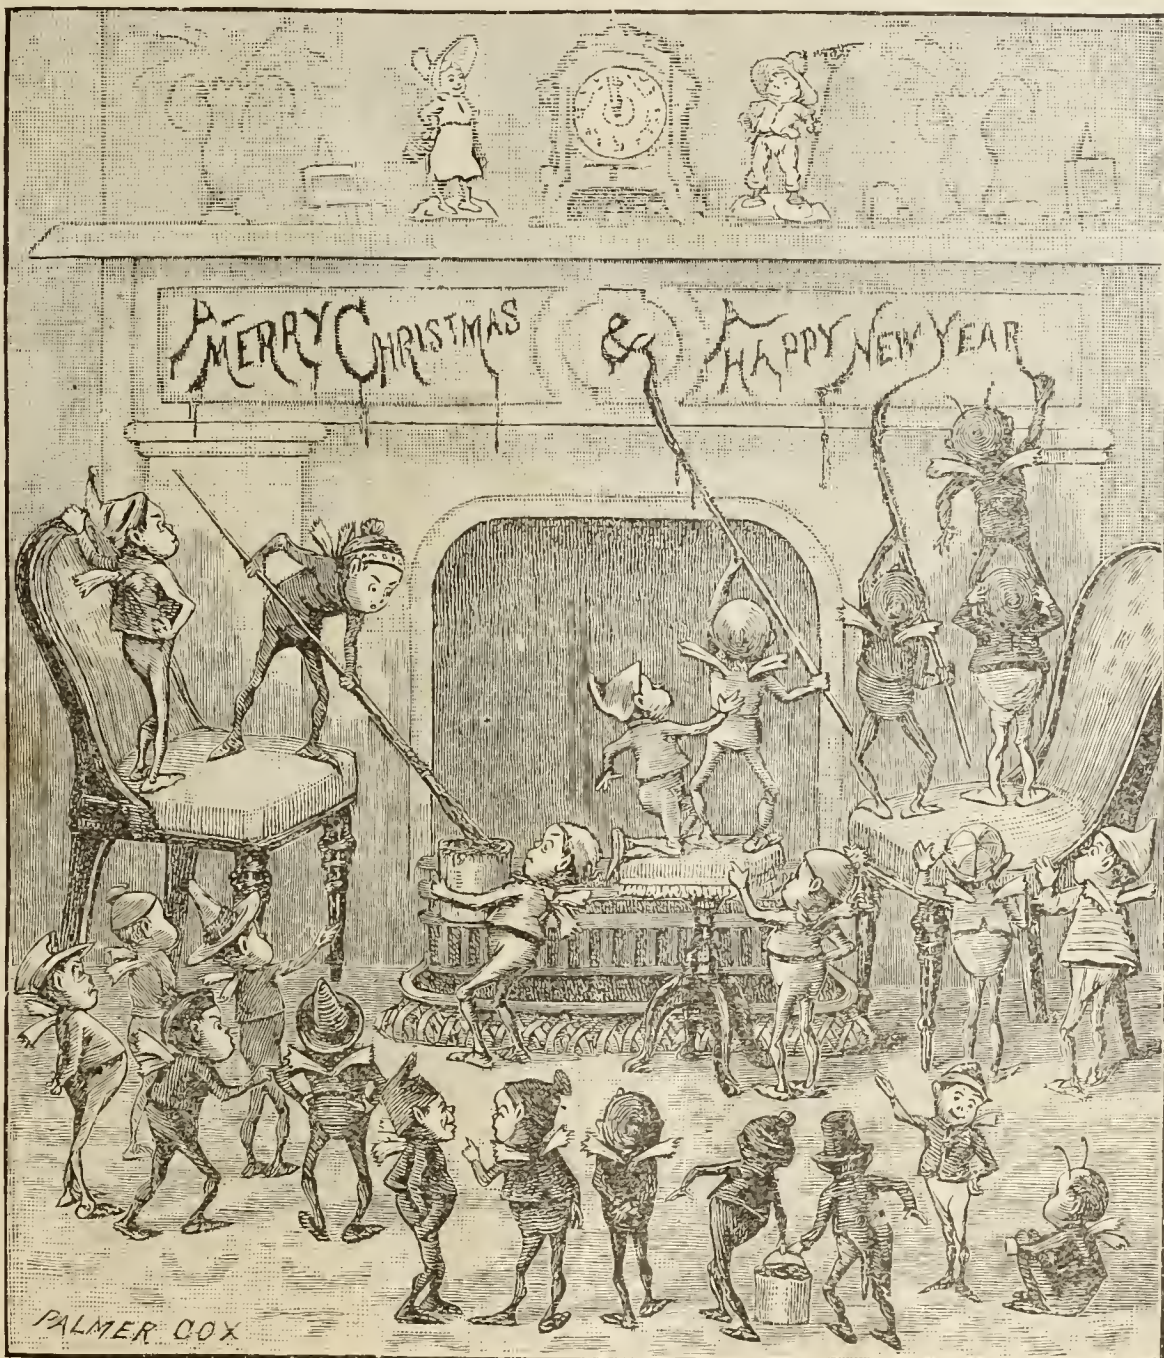 A MERRY CHRISTMAS & A HAPPY NEW YEAR
PALMER COX